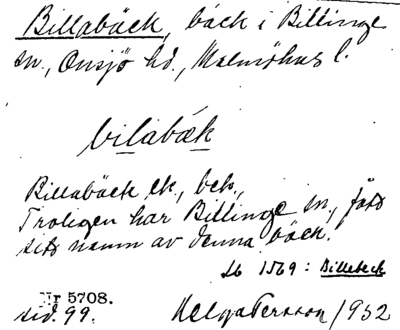 Billabäck, bäck i Billinge
sn., Onsjö hd., Malmöhus l.
bilabäk
Billabäck ek., bek.,
Troligen har Billinge sn., fått
sitt namn av denna bäck.
Lb 1569: Billebeck
Nr 5708.
sid. 99.
Helga Persson/1932